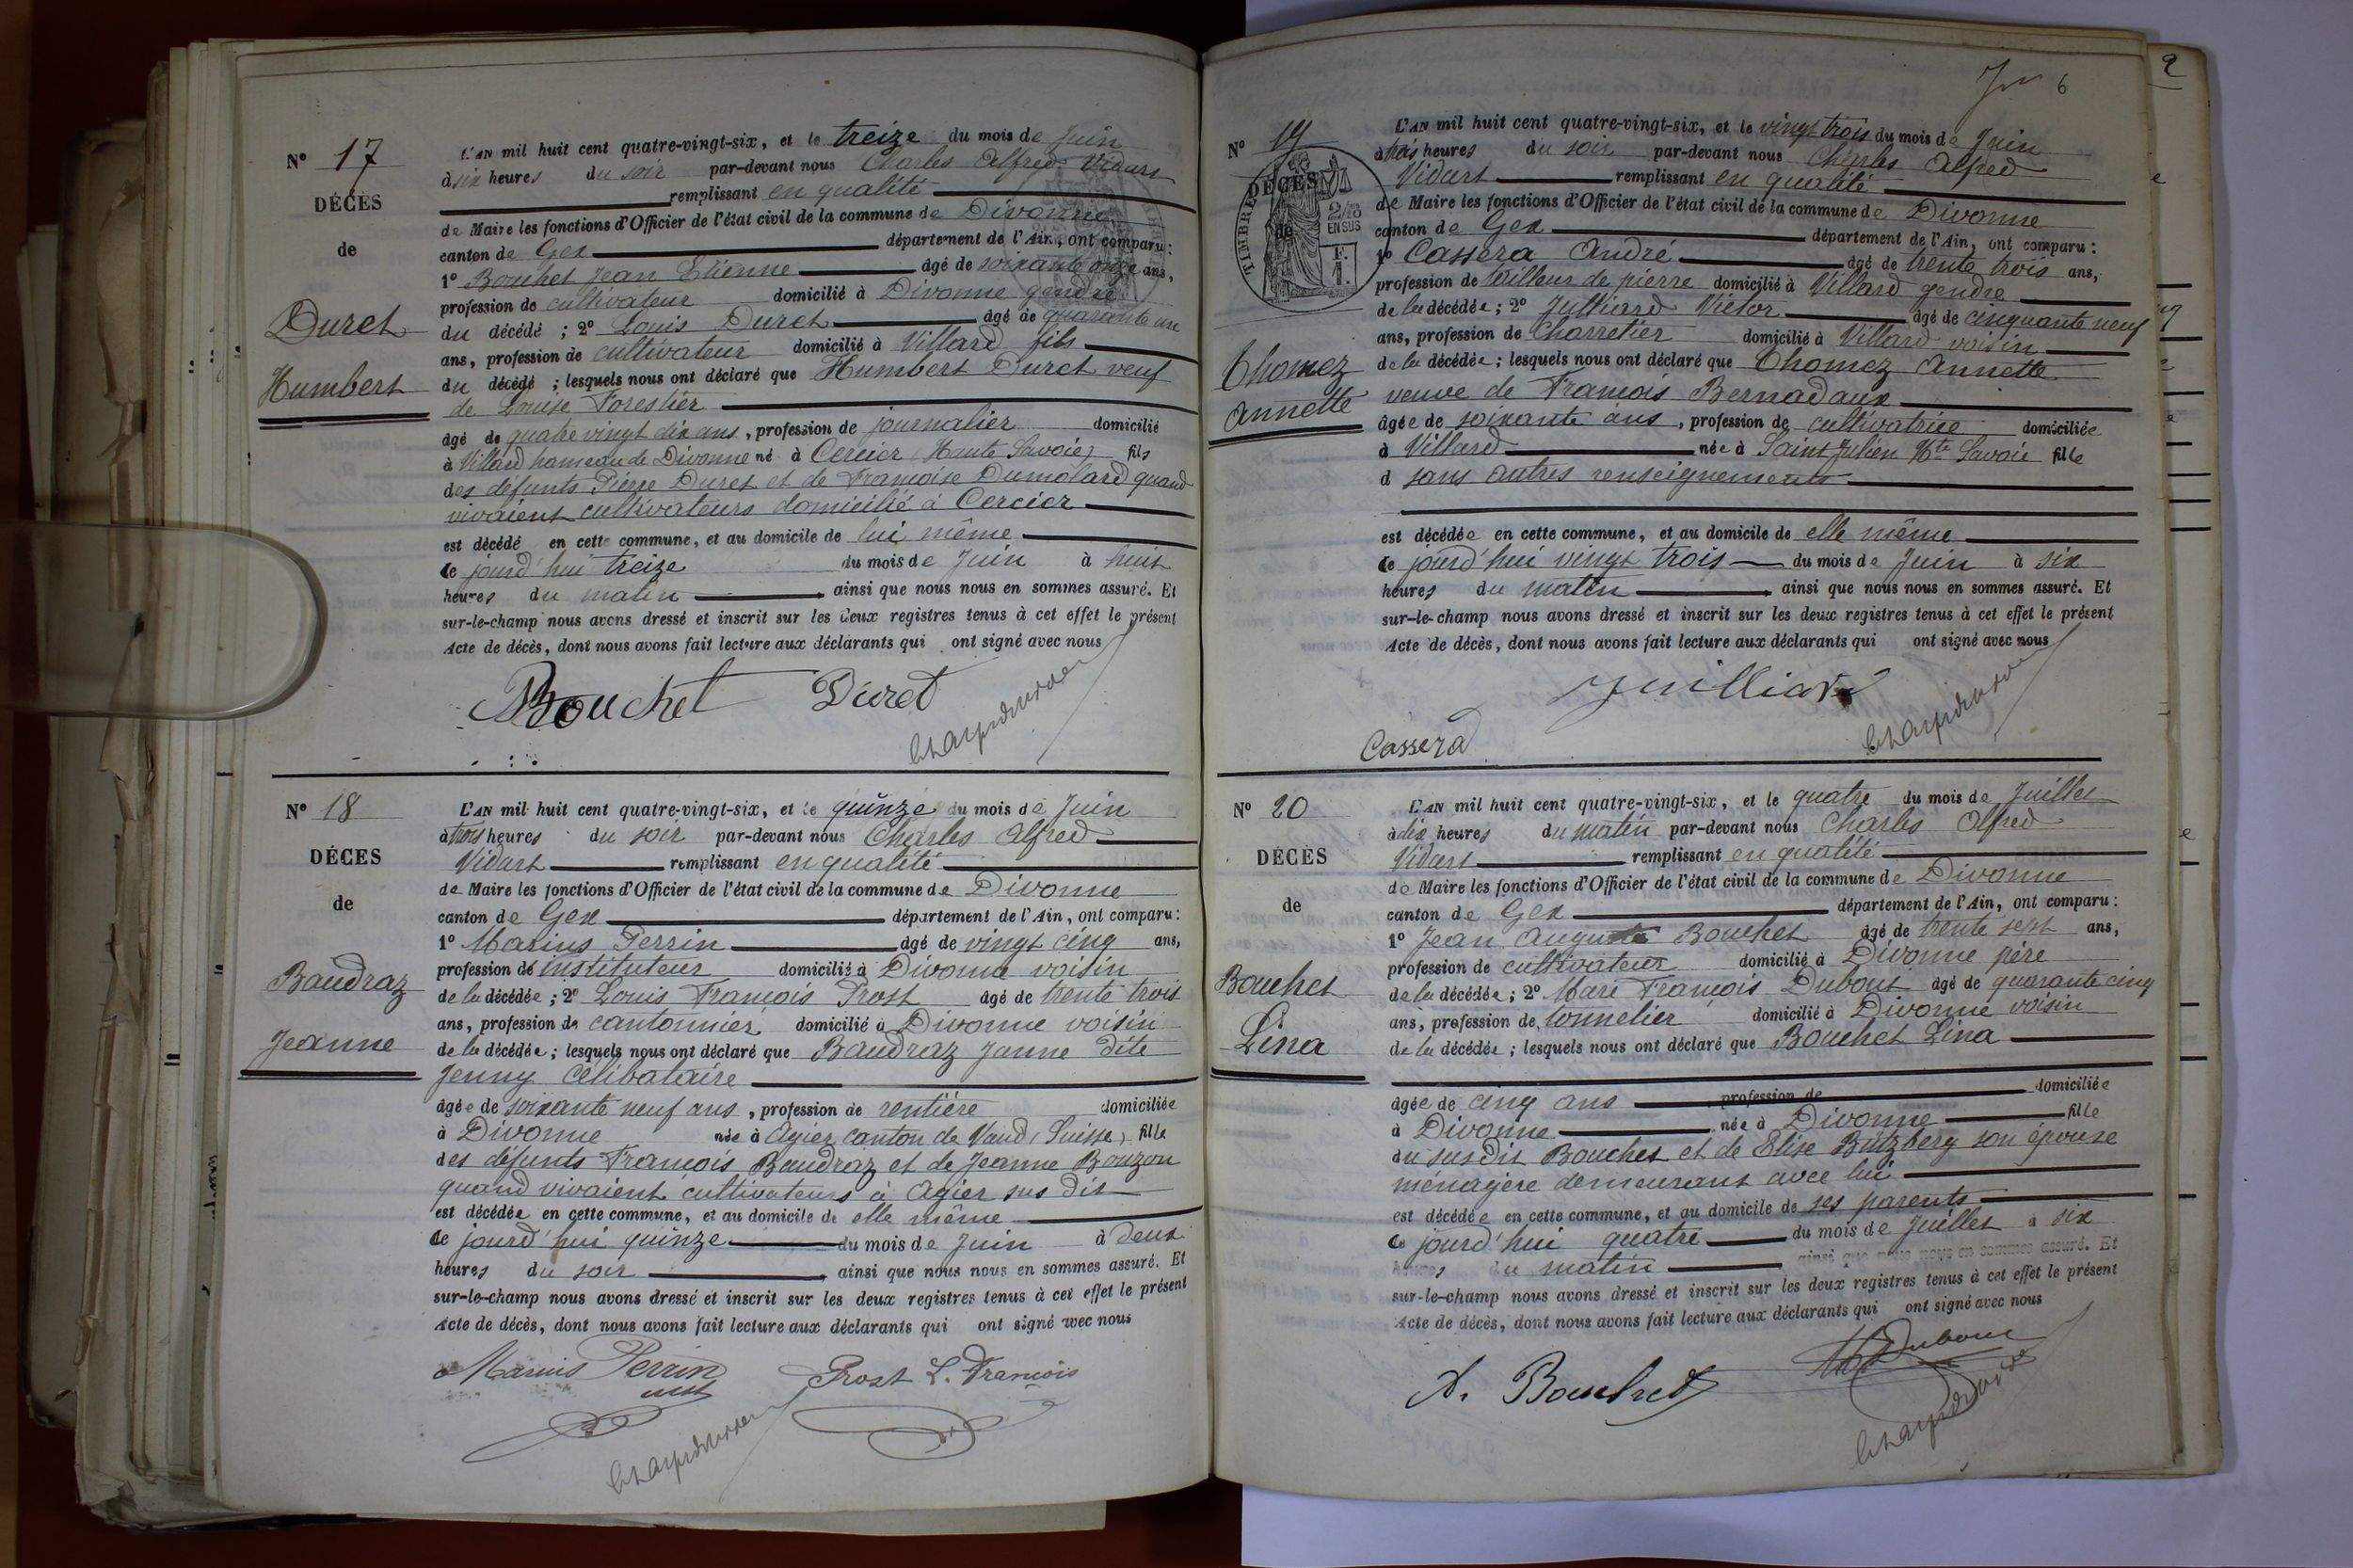 N° 17
DÉCÈS
de
Duret
Humbert
L'AN mil huit cent quatre-vingt-six, et le treize du mois de Juin
à six heures du soir par-devant nous Charles Alfred Vidart
remplissant en qualité
de Maire les fonctions d'Officier de l'état civil de la commune de Divonne
canton de Gex département de l'Ain, ont comparu :
1° Bouchet Jean Etienne âgé de soixante onze ans,
profession de cultivateur domicilié à Divonne gendre
du décédé ; 2° Louis Duret âgé de quarante un
ans, profession de cultivateur domicilié à Villard fils
du décédé ; lesquels nous ont déclaré que Humbert Duret veuf
de Louise Forestier
âgé de quatre vingt dix ans, profession de journalier domicilié
à Villard hameau de Divonne né à Cercier (Haute Savoie) fils
des défunts Pierre Duret et de Françoise Dumolard quand
vivaient cultivateurs domicilié à Cercier
est décédé en cette commune, et au domicile de lui même
le jourd'hui treize du mois de Juin à huit
heures du matin ainsi que nous nous en sommes assuré. Et
sur-le-champ nous avons dressé et inscrit sur les deux registres tenus à cet effet le présent
Acte de décès, dont nous avons fait lecture aux déclarants qui ont signé avec nous
Bouchet Duret
N° 18
DÉCES
de
Baudraz
Jeanne
L'AN mil huit cent quatre-vingt-six, et le quinze du mois de Juin
à trois heures du soir par-devant nous Charles Alfred
Vidart remplissant en qualité
de Maire les fonctions d'Officier de l'état civil de la commune de Divonne
canton de Gex département de l'Ain, ont comparu :
1° Marius Perrin âgé de vingt cinq ans,
profession de instituteur domicilié à Divonne voisin
de la décédée ; 2° Louis François Prost âgé de trente trois
ans, profession de cantonnier domicilié à Divonne voisin
de la décédée ; lesquels nous ont déclaré que Baudraz Janne dite
Jenny célibataire
âgée de soixante neuf ans, profession de rentière domiciliée
à Divonne née à Agiez canton de Vaud (Suisse) fille
des défunts François Baudraz et de Jeanne Bouzon
quand vivaient cultivateurs à Agier sus dit
est décédée en cette commune, et au domicile de elle même
le jourd'hui quinze du mois de Juin à deux
heures du soir ainsi que nous nous en sommes assuré. Et
sur-le-champ nous avons dressé et inscrit sur les deux registres tenus à cet effet le présent
Acte de décès, dont nous avons fait lecture aux déclarants qui ont signé avec nous
Marius Perrin Prost L. François
6
2
N° 19
DÉCÈS
de
TIMBRE
2/10
EN SUS
F.
1.
Chomez
Annette
L'AN mil huit cent quatre-vingt-six, et le vingt trois du mois de Juin
à trois heures du soir par-devant nous Charles Alfred
Vidart remplissant en qualité
de Maire les fonctions d'Officier de l'état civil de la commune de Divonne
canton de Gex département de l'Ain, ont comparu :
1° Cassera André âgé de trente trois ans,
profession de tailleur de pierre domicilié à Villard gendre
de la décédée ; 2° Julliard Victor âgé de cinquante neuf
ans, profession de Charretier domicilié à Villard voisin
de la décédée ; lesquels nous ont déclaré que Chomez Annette
veuve de François Bernadaux
âgée de soixante ans, profession de cultivatrice domiciliée
à Villard née à Saint Julien Hte Savoie fille
d sans autres renseignements
est décédée en cette commune, et au domicile de elle même
le jourd'hui vingt trois du mois de Juin à six
heures du matin ainsi que nous nous en sommes assuré. Et
sur-le-champ nous avons dressé et inscrit sur les deux registres tenus à cet effet le présent
Acte de décès, dont nous avons fait lecture aux déclarants qui ont signé avec nous
Juilliard
Cassera
N° 20
DÉCÈS
de
Bouchet
Lina
L'AN mil huit cent quatre-vingt-six, et le quatre du mois de Juillet
à dix heures du matin par-devant nous Charles Alfred
Vidart remplissant en qualité
de Maire les fonctions d'Officier de l'état civil de la commune de Divonne
canton de Gex département de l'Ain, ont comparu :
1° Jean Auguste Bouchet âgé de trente sept ans,
profession de cultivateur domicilié à Divonne père
de la décédée ; 2° Marc François Dubout âgé de quarante cinq
ans, profession de tonnelier domicilié à Divonne voisin
de la décédée ; lesquels nous ont déclaré que Bouchet Lina
âgée de cinq ans profession de domiciliée
à Divonne née à Divonne fille
du susdit Bouchet et de Elise Bützberg son épouse
ménagère demeurant avec lui
est décédée en cette commune, et au domicile de ses parents
le jourd'hui quatre du mois de Juillet à six
heures du matin ainsi que nous nous en sommes assuré. Et
sur-le-champ nous avons dressé et inscrit sur les deux registres tenus à cet effet le présent
Acte de décès, dont nous avons fait lecture aux déclarants qui ont signé avec nous
A. Bouchet